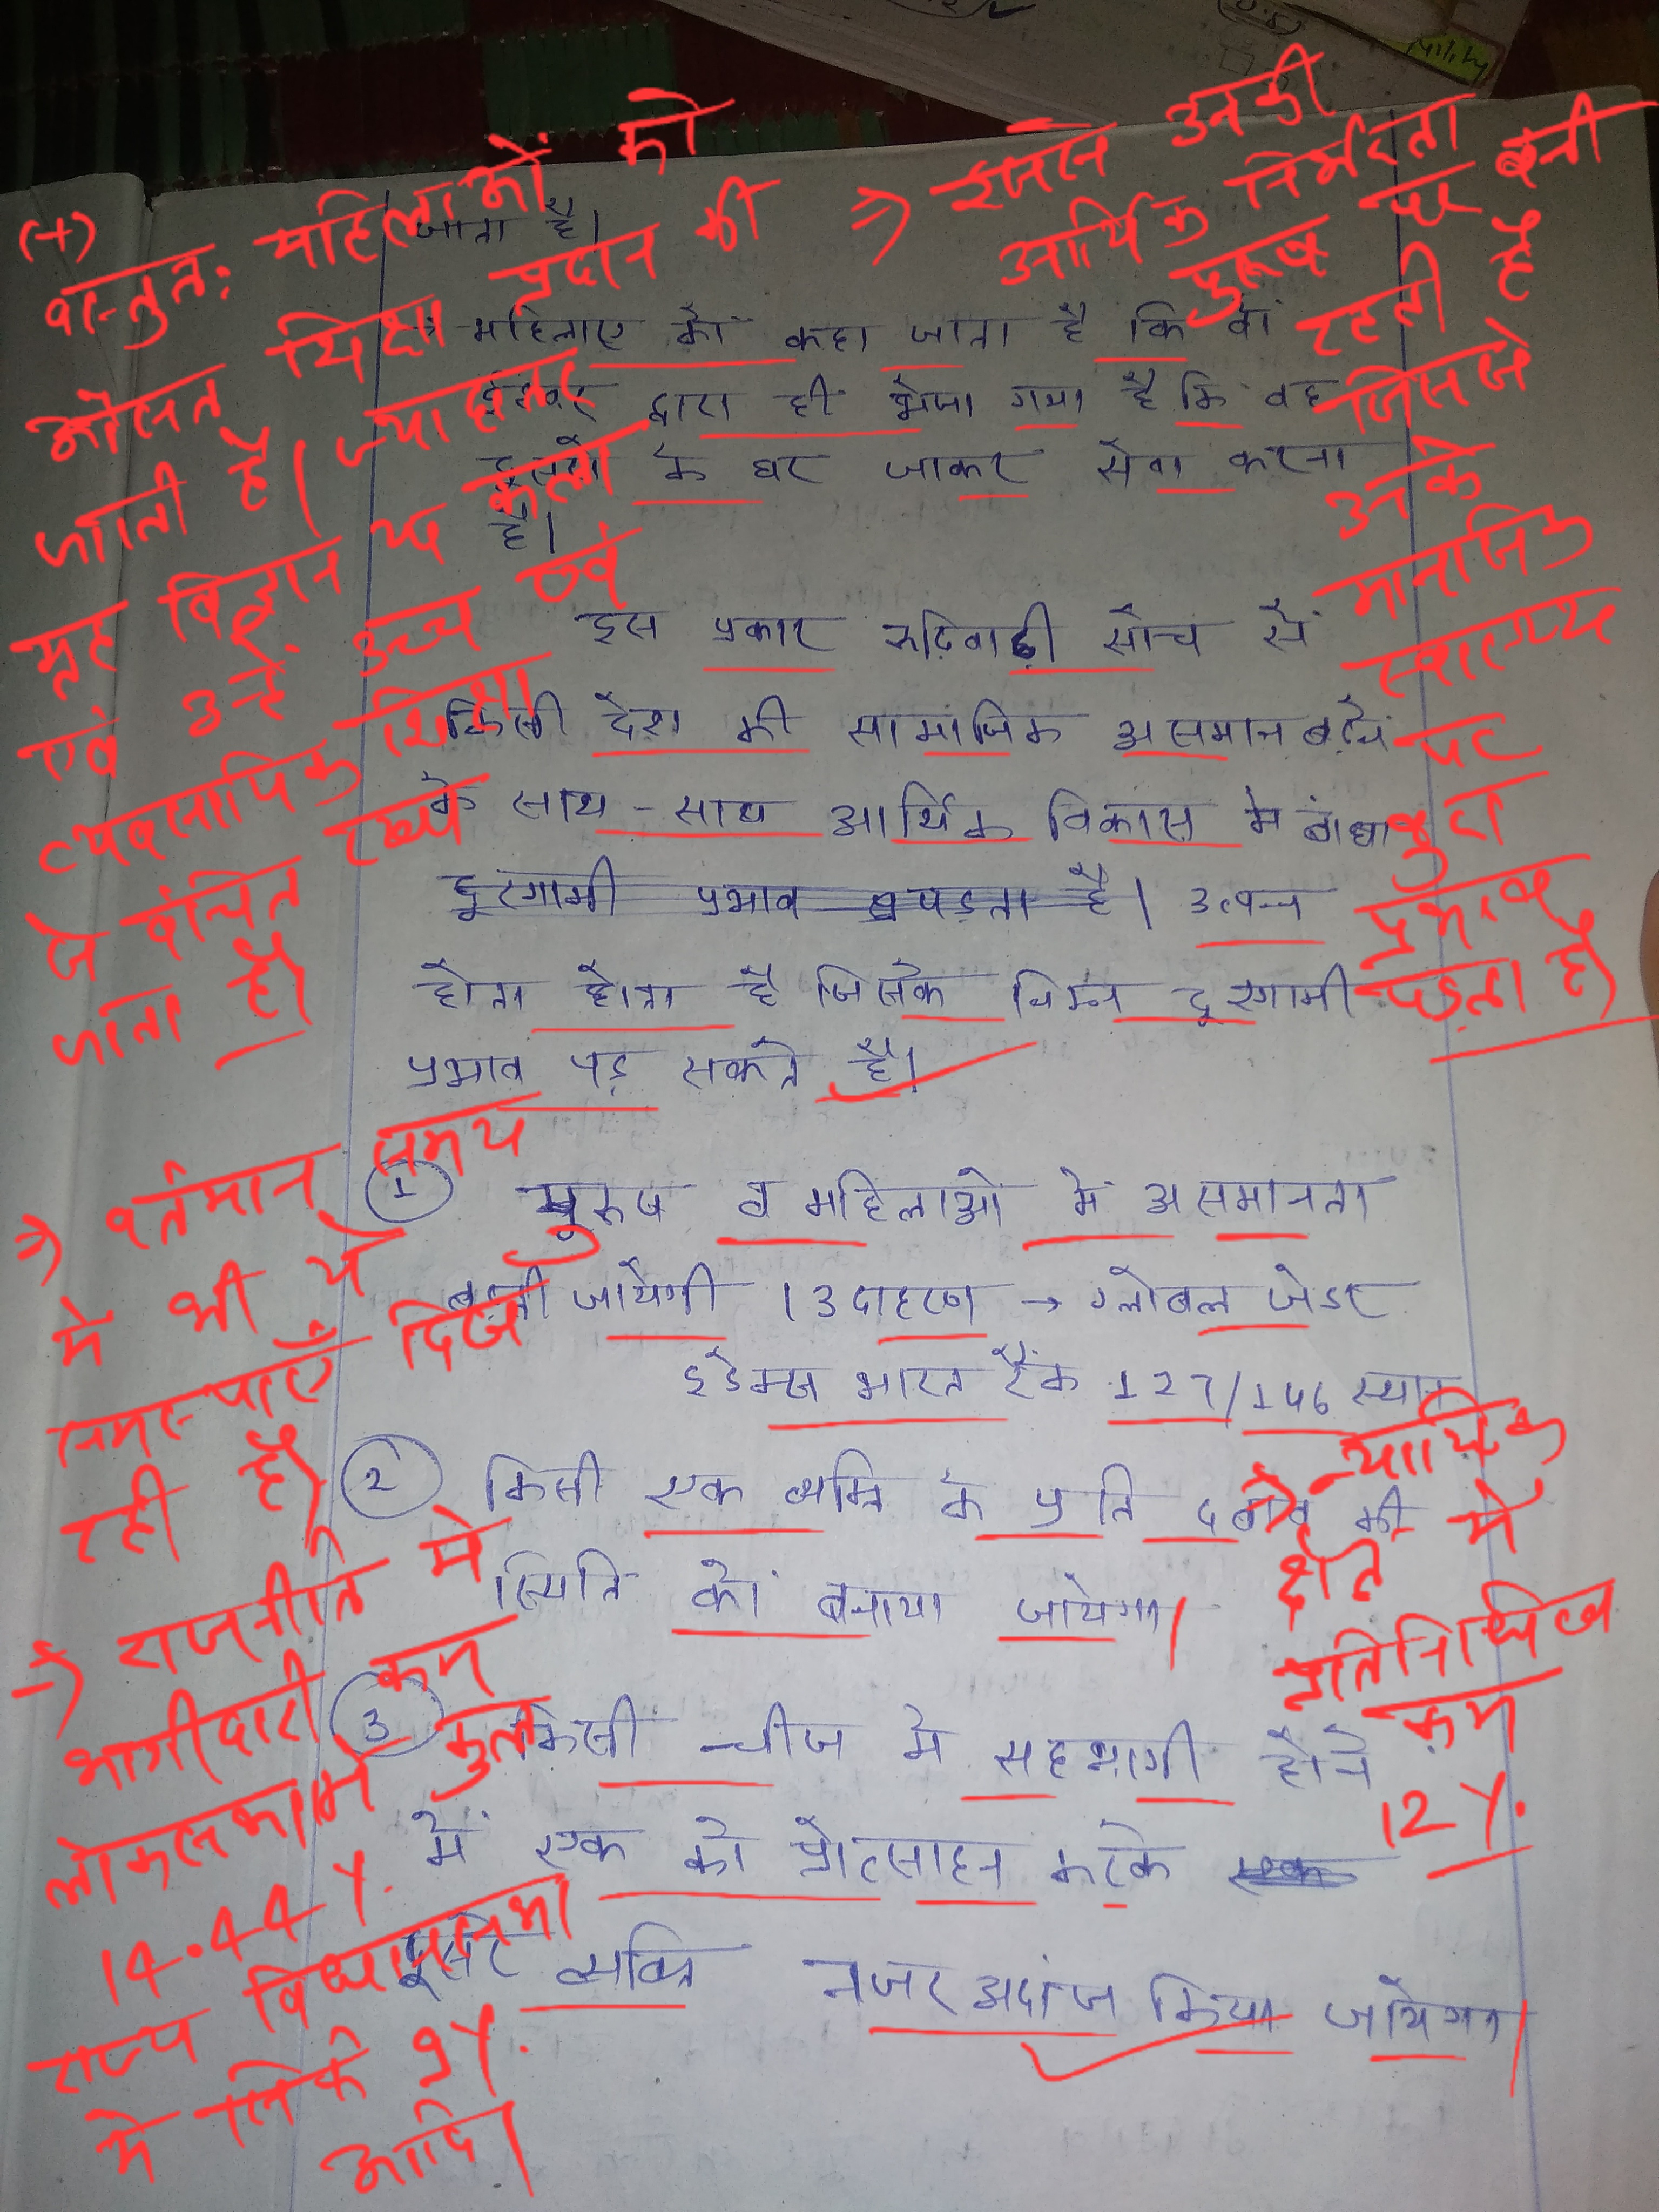 जाता है।
→ महिलाए को कहा जाता है कि वो
ईश्वर द्वारा ही भेजा गया है कि वह
दूसरो के घर जाकर सेवा करना
है।
इस प्रकार रूढ़िवादी सोच से
किसी देश की सामाजिक असमान बढ़ने
के साथ - साथ आर्थिक विकास मे बांधा
दूरगामी प्रभाव पड़ता है। उत्पन्न
होता होता है जिसके निम्न दूरगामी
प्रभाव पड़ सकते है।
① पुरुष व महिलाओ मे असमानता
बढ़ती जायेगी । उदाहरण → ग्लोबल जेंडर
इंडेक्स भारत रैंक 127/146 स्थान
② किसी एक व्यक्ति के प्रति दबाव की
स्थिति को बनाया जायेगा।
③ किसी चीज मे सहभागी होने
में एक को प्रोत्साहन करके एक
दूसरे व्यक्ति नजर अदांज किया जायेगा।
(+)
वस्तुतः महिलाओं को
औसत शिक्षा प्रदान की
जाती है। ज्यादातर
गृह विज्ञान व कला
एवं उन्हें उच्च एवं
व्यवसायिक शिक्षा
से वंचित रखा
जाता है।
⇒ इससे उनकी
आर्थिक निर्भरता
पुरुष पर बनी
रहती है
जिससे
उनके
मानसिक
स्वास्थ्य
पर
बुरा
प्रभाव
पड़ता है।
⇒ वर्तमान समय
मे भी ये
समस्याएँ दिख
रही है।
→ राजनीति मे
भागीदारी कम
लोकसभा में कुल
14.44%
राज्य विधानसभा
मे सिर्फ 9%
आदि।
→ न्यायिक
क्षेत्र में
प्रतिनिधित्व
कम
12%.